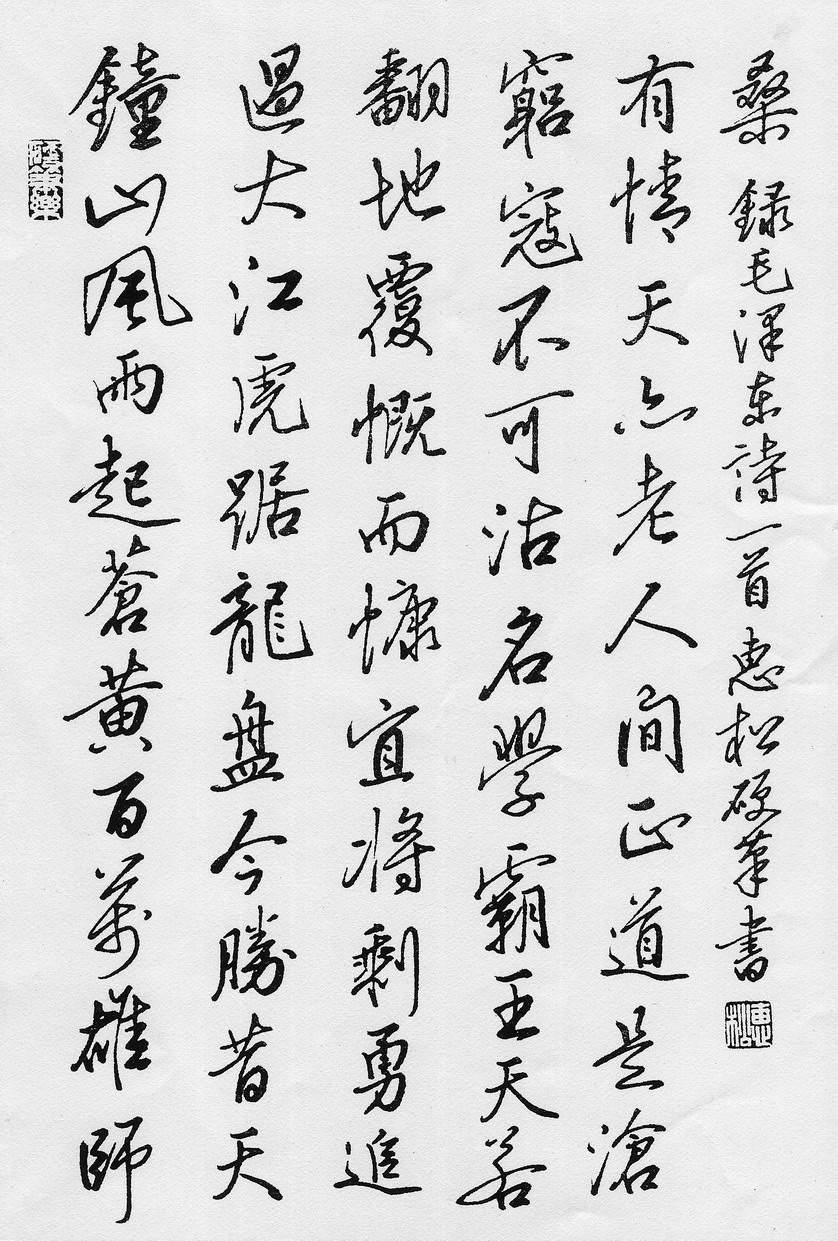 鐘山風雨起蒼黃百萬雄師
過大江虎踞龍盤今勝昔天
翻地覆慨而慷宜將剩勇追
窮寇不可沽名學霸王天若
有情天亦老人間正道是滄
桑 錄毛澤東詩一首惠松硬筆書
惠松